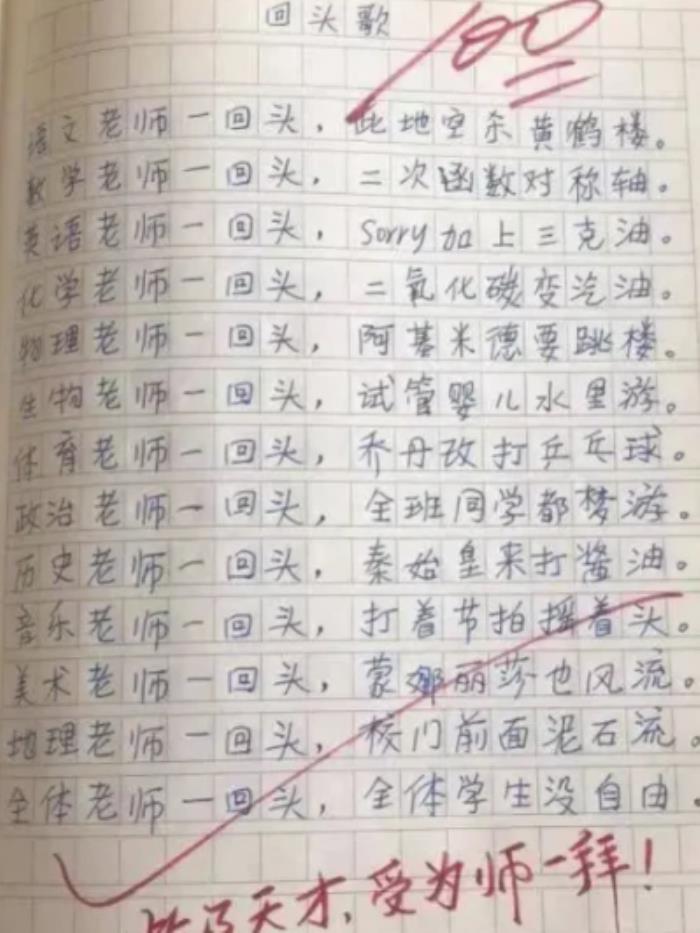 回头歌
100
语文老师一回头，此地空余黄鹤楼。
数学老师一回头，二次函数对称轴。
英语老师一回头，Sorry加上三克油。
化学老师一回头，二氧化碳变汽油。
物理老师一回头，阿基米德要跳楼。
生物老师一回头，试管婴儿水里游。
体育老师一回头，乔丹改打乒乓球。
政治老师一回头，全班同学都梦游。
历史老师一回头，秦始皇来打酱油。
音乐老师一回头，打着节拍摇着头。
美术老师一回头，蒙娜丽莎也风流。
地理老师一回头，校门前面泥石流。
全体老师一回头，全体学生没自由。
此乃天才，受为师一拜！